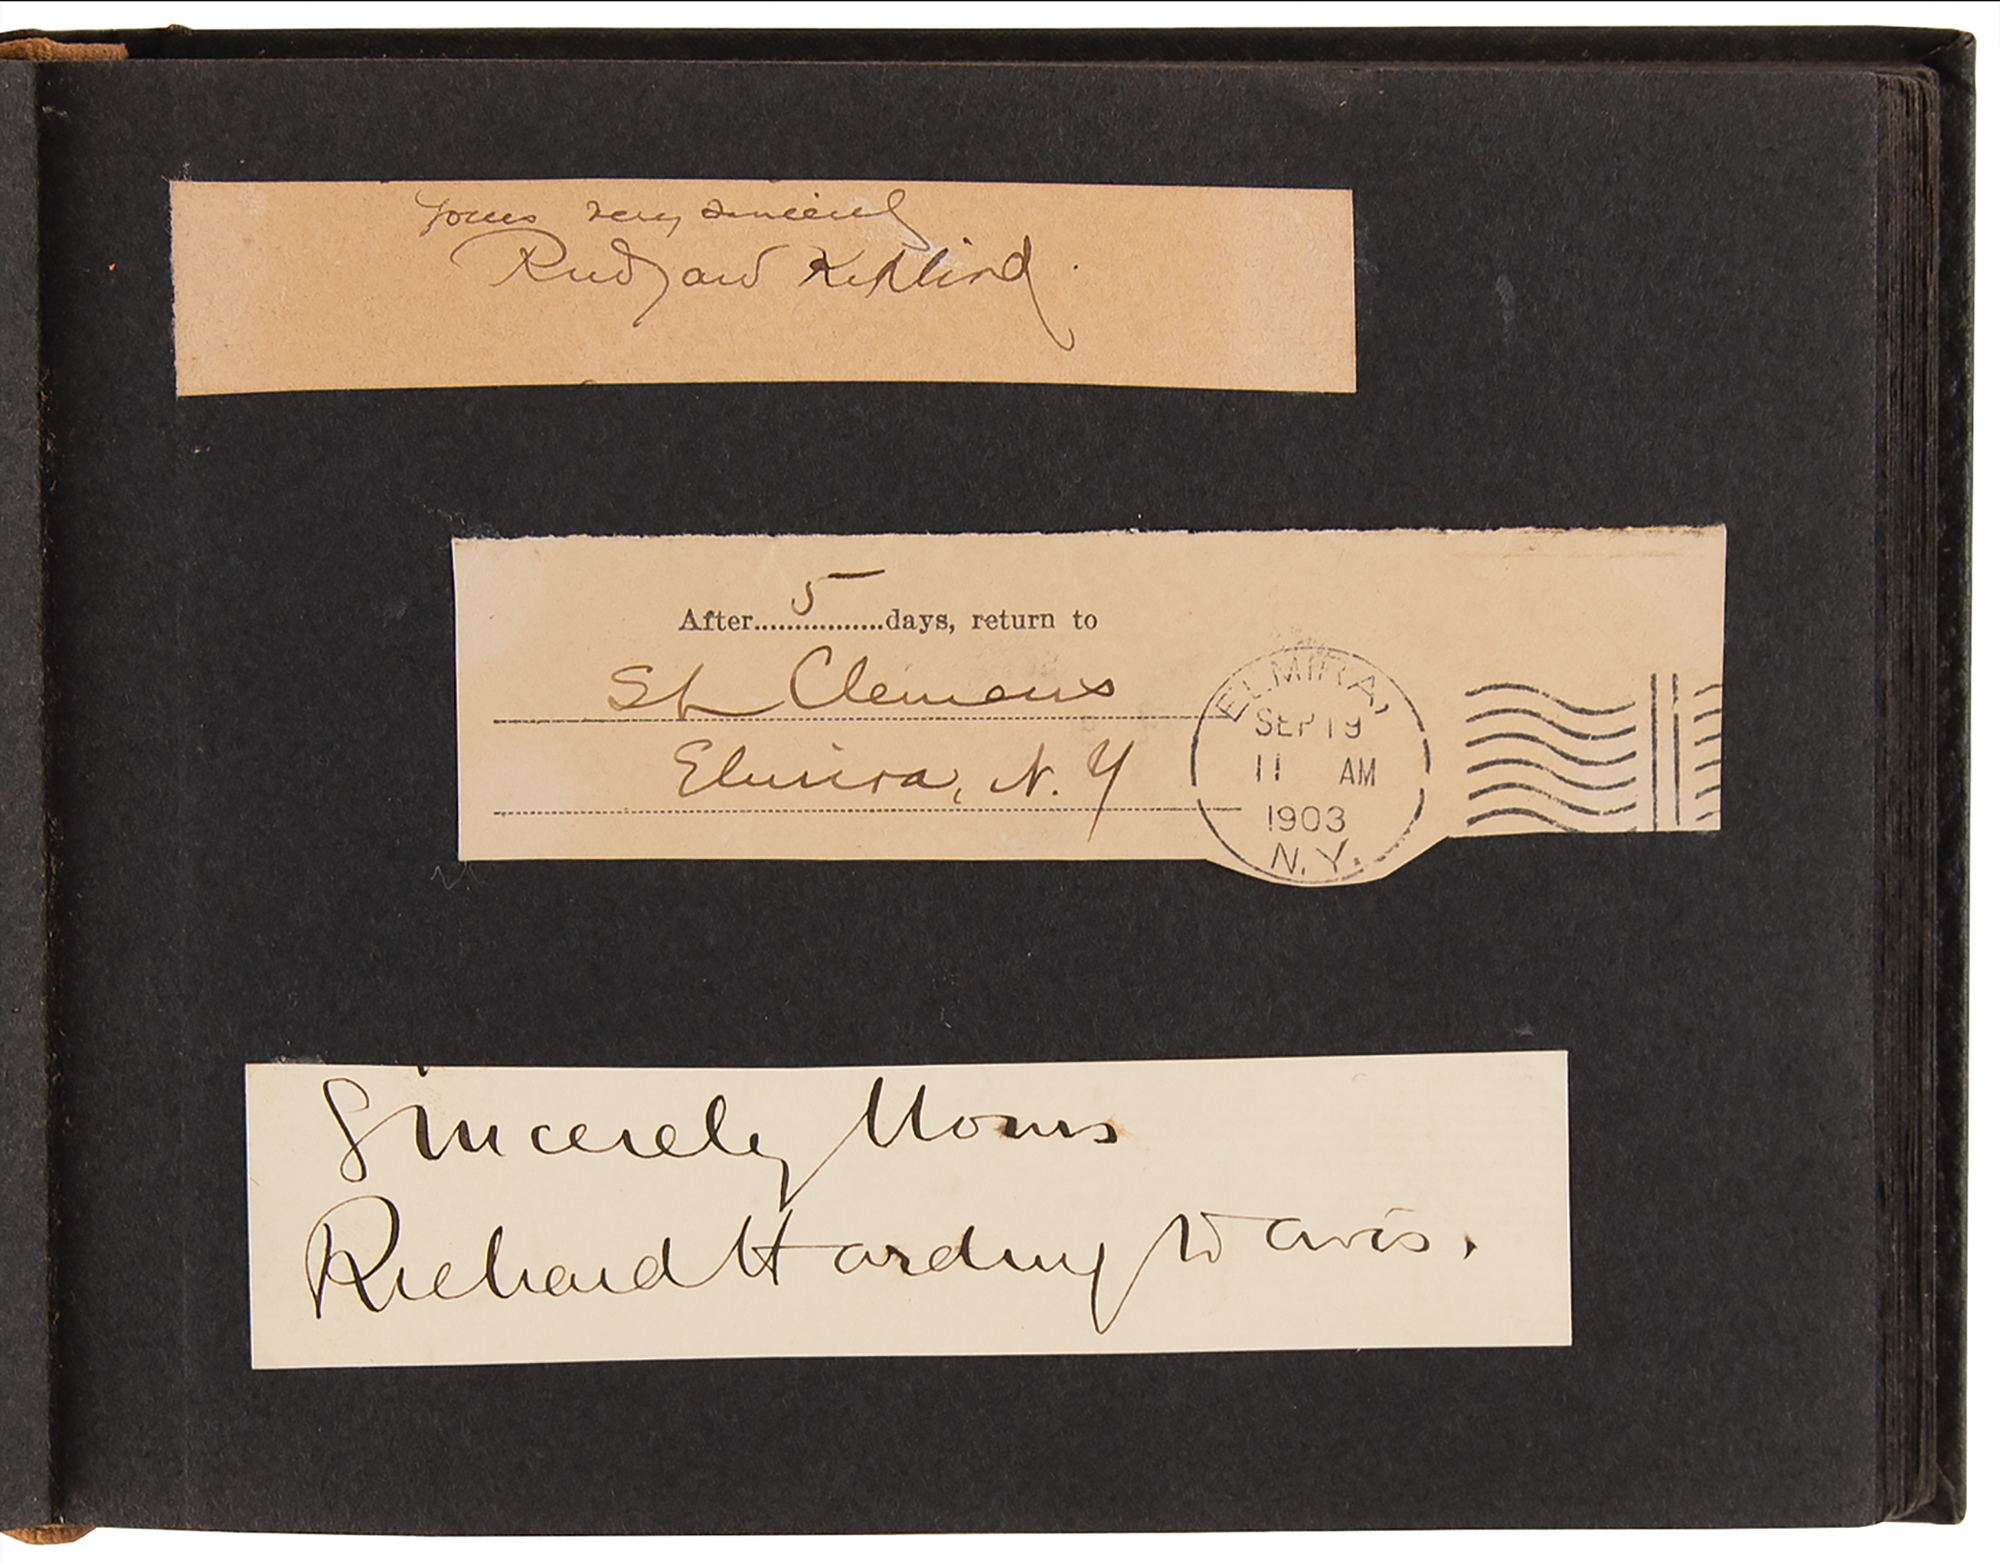 Yours very sincerely
Rudyard Kipling.
After....5....days, return to
SL Clemens
Elmira, N.Y
ELMIRA,
SEP 19
11 AM
1903
N.Y.
Sincerely Yours
Richard Harding Davis.